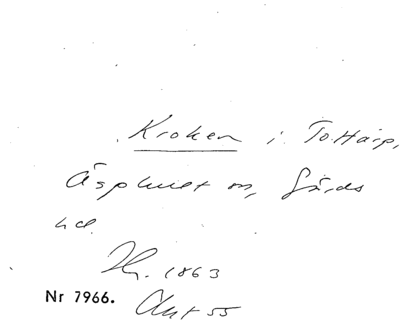 Kroken i Tottarp,
Äsphult sn, Gärds
hd.
Hr. 1863
Nr 7966. Ant 55